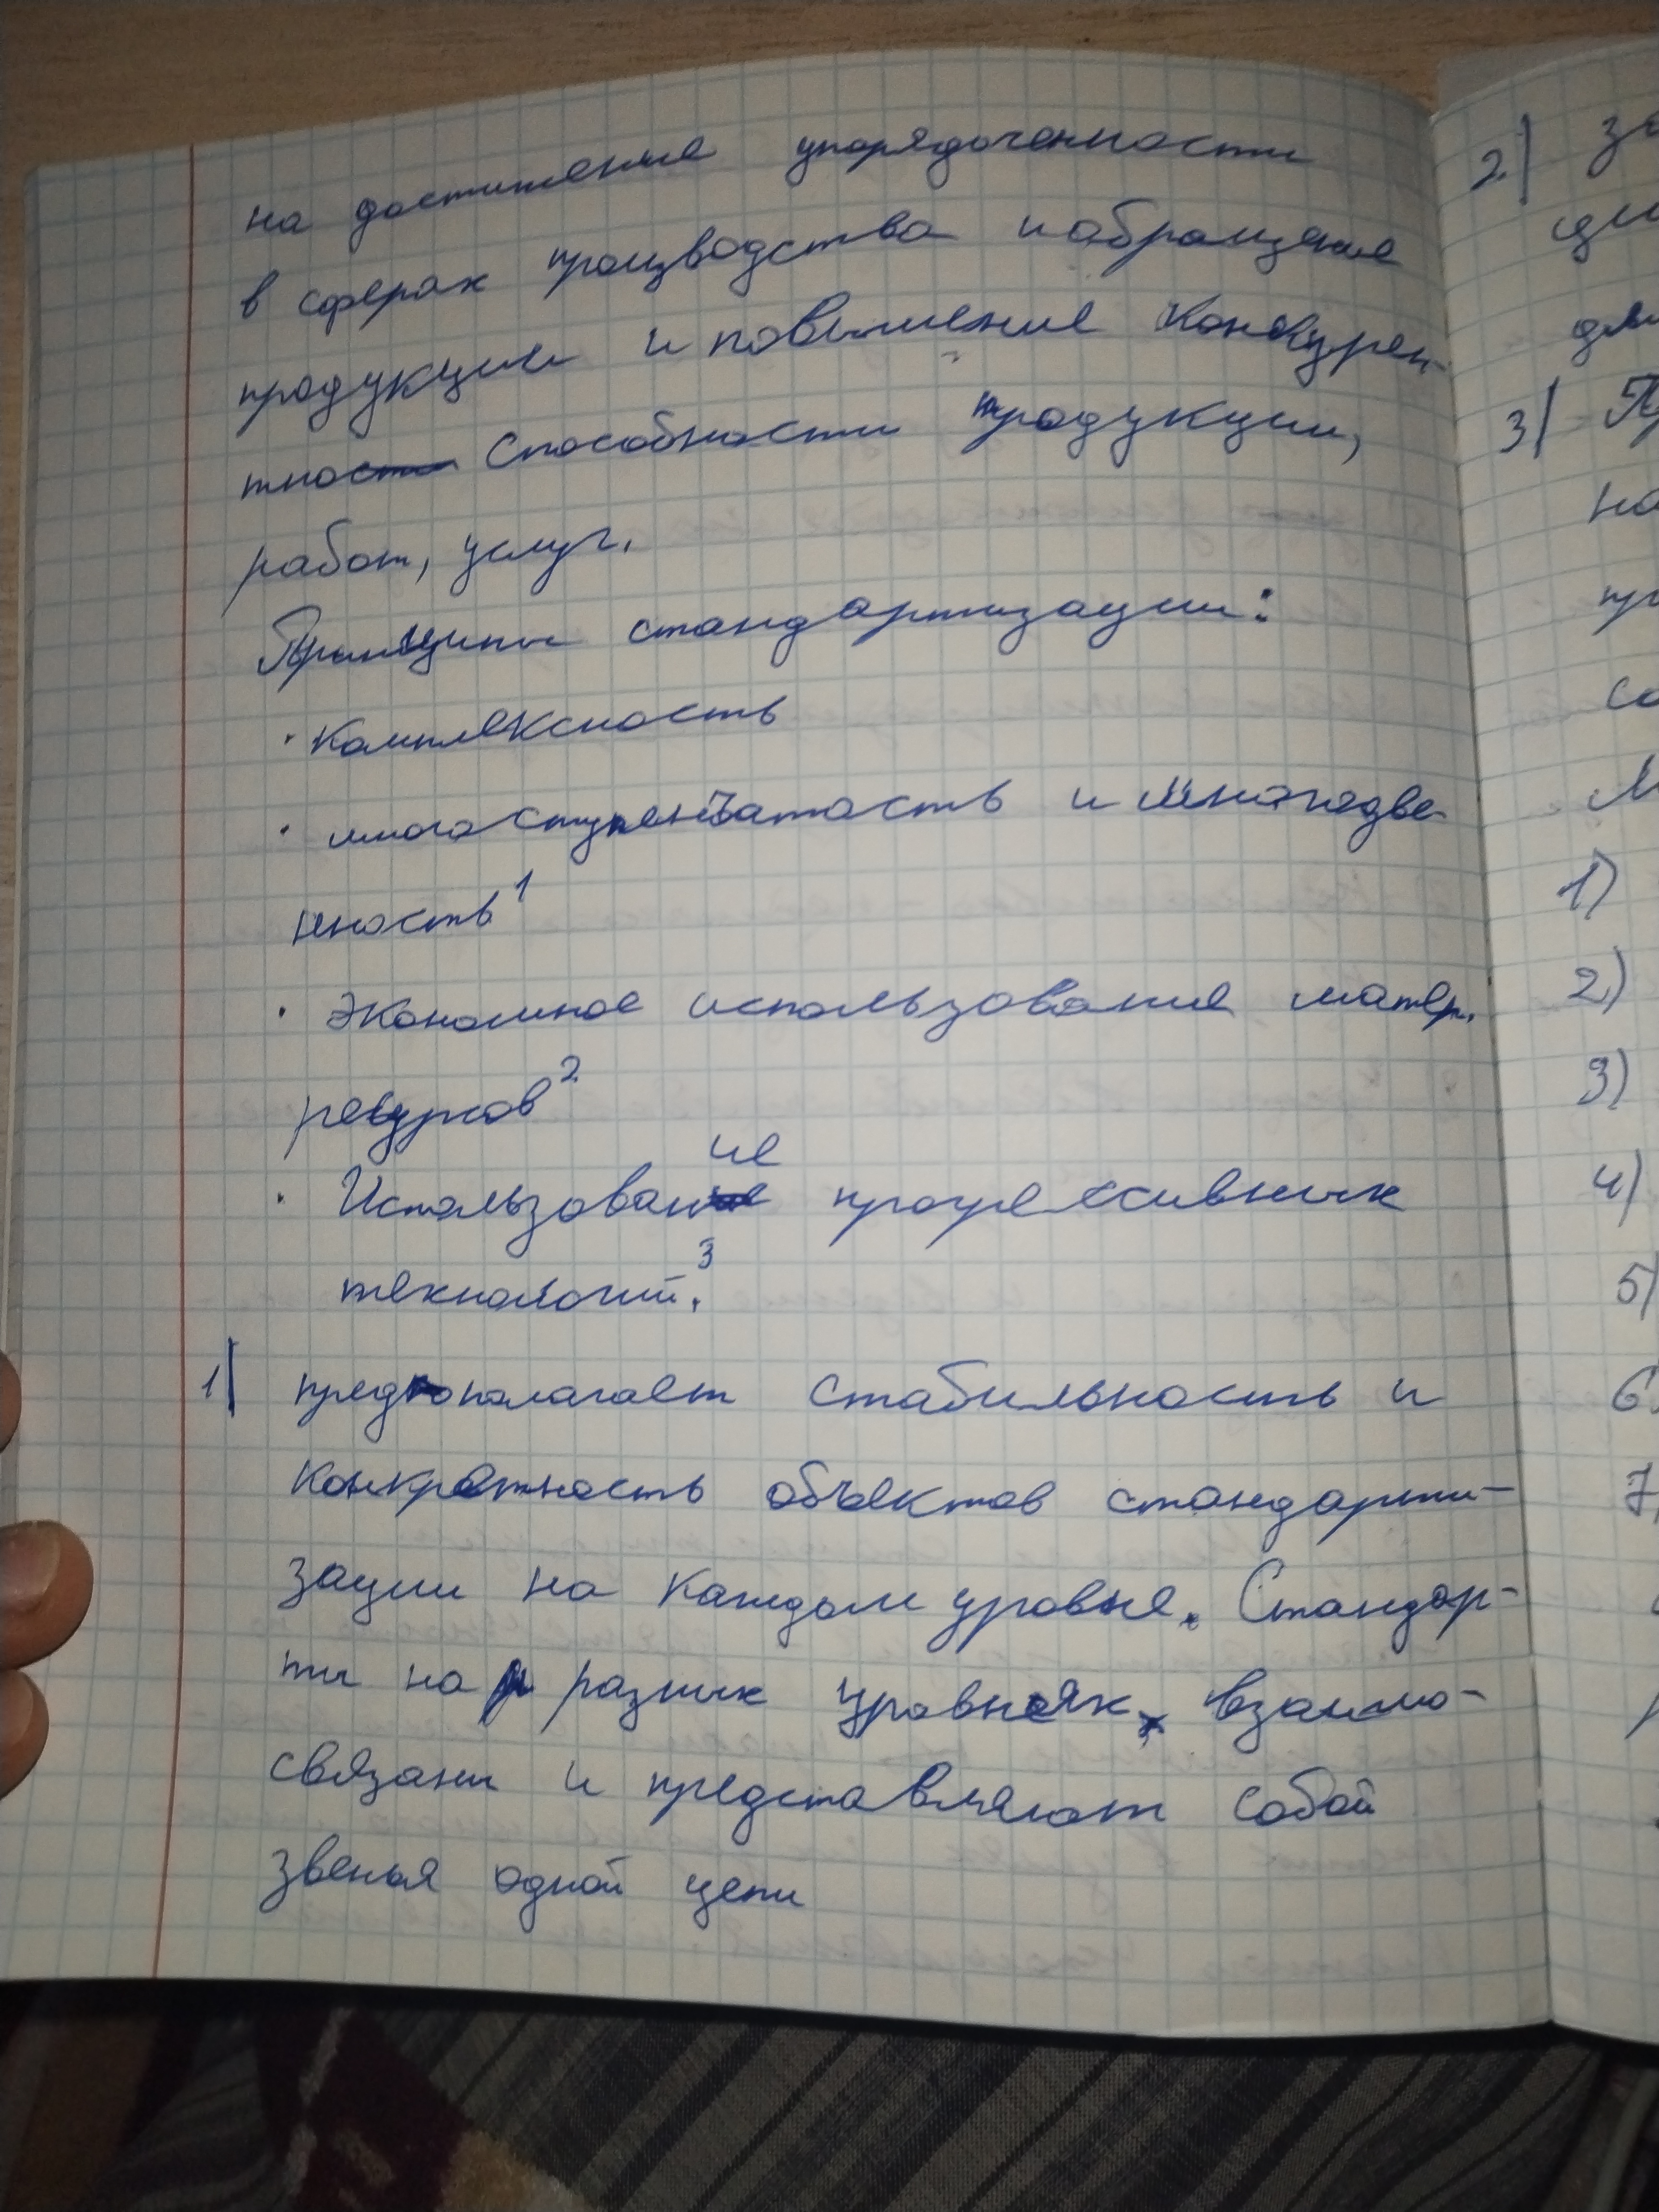 на достижение упорядоченности
в сферах производства и обращения
продукции и повышение конкурен-
тно способности продукции,
работ, услуг.
Принципы стандартизации:
· Комплексность
· многоступенчатость и многодве-
нность¹
· Экономное использование матер.
ресурсов²
· Использование прогрессивных
технологий.³
1) предполагает стабильность и
конкретность объектов стандарти-
зации на каждом уровне. Стандар-
ты на разных уровнях взаимо-
связаны и представляют собой
звенья одной цепи
2)
3)
на
1)
2)
3)
4)
5)
6
7